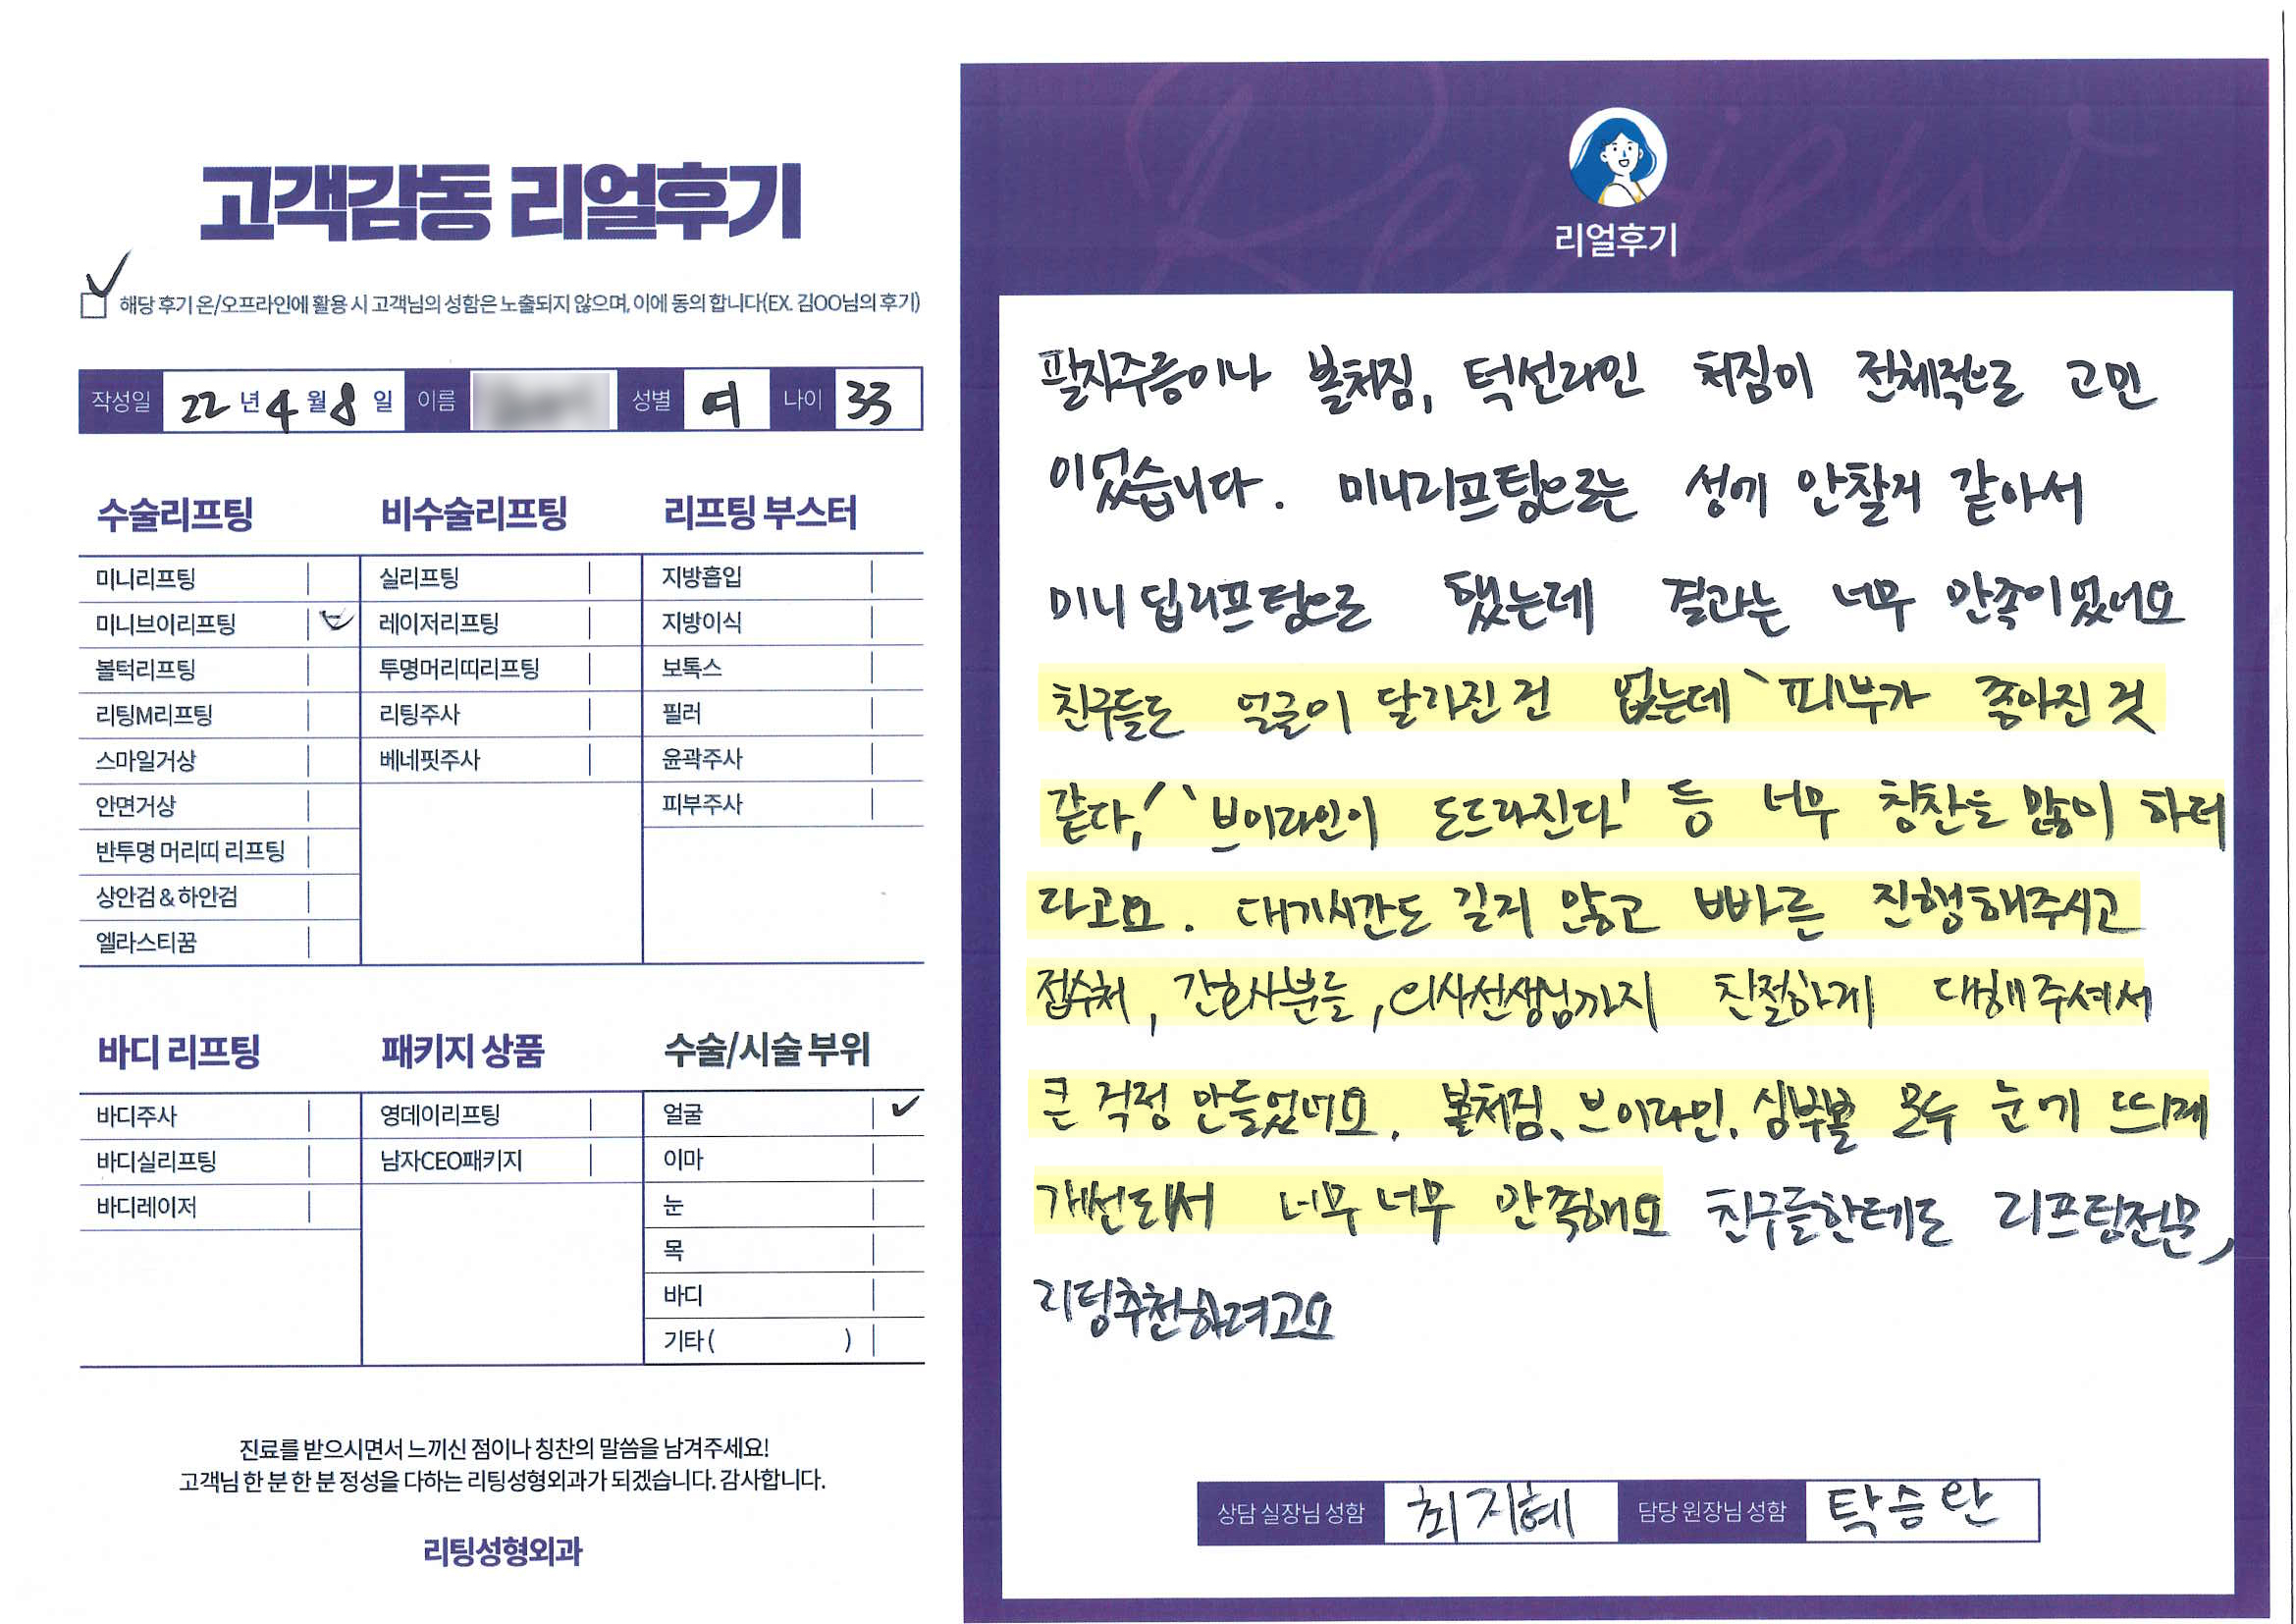 고객감동 리얼후기
해당 후기 온/오프라인에 활용 시 고객님의 성함은 노출되지 않으며, 이에 동의 합니다(EX. 김OO님의 후기)
작성일 22 년 4 월 8 일 이름 성별 여 나이 33
수술리프팅
미니리프팅
미니브이리프팅
볼턱리프팅
리팅M리프팅
스마일거상
안면거상
반투명 머리띠 리프팅
상안검 & 하안검
엘라스티꿈
비수술리프팅
실리프팅
레이저리프팅
투명머리띠리프팅
리팅주사
베네핏주사
리프팅 부스터
지방흡입
지방이식
보톡스
필러
윤곽주사
피부주사
바디 리프팅
바디주사
바디실리프팅
바디레이저
패키지 상품
영데이리프팅
남자CEO패키지
수술/시술 부위
얼굴
이마
눈
목
바디
기타 ( )
진료를 받으시면서 느끼신 점이나 칭찬의 말씀을 남겨주세요!
고객님 한 분 한 분 정성을 다하는 리팅성형외과가 되겠습니다. 감사합니다.
리팅성형외과
Review
리얼후기
팔자주름이나 볼처짐, 턱선라인 처짐이 전체적으로 고민
이었습니다. 미니리프팅으로는 성에 안찰거 같아서
미니 딥리프팅으로 했는데 결과는 너무 만족이었어요
친구들도 얼굴이 달라진 건 없는데 '피부가 좋아진 것
같다,' '브이라인이 도드라진다' 등 너무 칭찬을 많이 하더
라고요. 대기시간도 길지 않고 빠른 진행해주시고
접수처, 간호사분들, 의사선생님까지 친절하게 대해주셔서
큰 걱정 안들었네요. 볼처짐, 브이라인, 심부볼 모두 눈에 띄게
개선되서 너무 너무 만족해요 친구들한테도 리프팅전문,
리팅추천하려고요
상담 실장님 성함 최지혜 담당 원장님 성함 탁승완